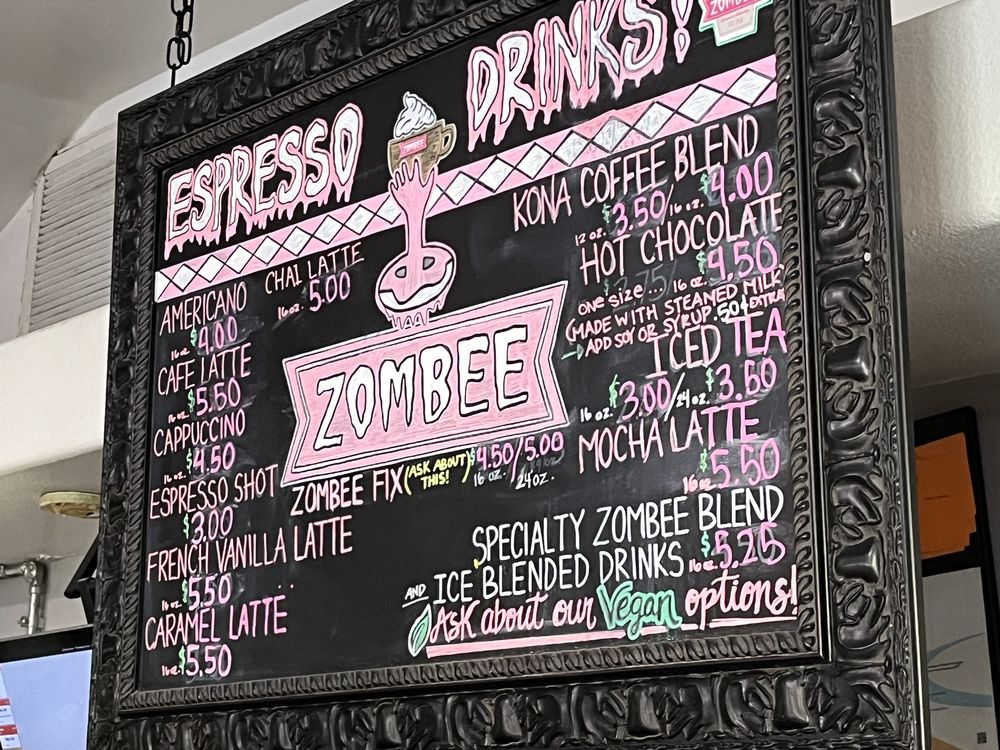 ESPRESSO DRINKS!
ZOMBEE
CHAI LATTE
16 oz. 5.00
AMERICANO
16 oz. $4.00
CAFE LATTE
16 oz. $5.50
CAPPUCCINO
16 oz. $4.50
ESPRESSO SHOT
$3.00
FRENCH VANILLA LATTE
16 oz. $5.50
CARAMEL LATTE
16 oz. $5.50
ZOMBEE
ZOMBEE FIX (ASK ABOUT THIS!) $4.50/5.00
16 oz. 24 oz.
KONA COFFEE BLEND
12 oz. $3.50/16 oz. $4.00
HOT CHOCOLATE
one size... 16 oz. $4.50
(MADE WITH STEAMED MILK
→ ADD SOY OR SYRUP .50¢ EXTRA
ICED TEA
16 oz. $3.00/24 oz. $3.50
MOCHA LATTE
16 oz. $5.50
SPECIALTY ZOMBEE BLEND
AND ICE BLENDED DRINKS 16 oz. $5.25
Ask about our Vegan options!